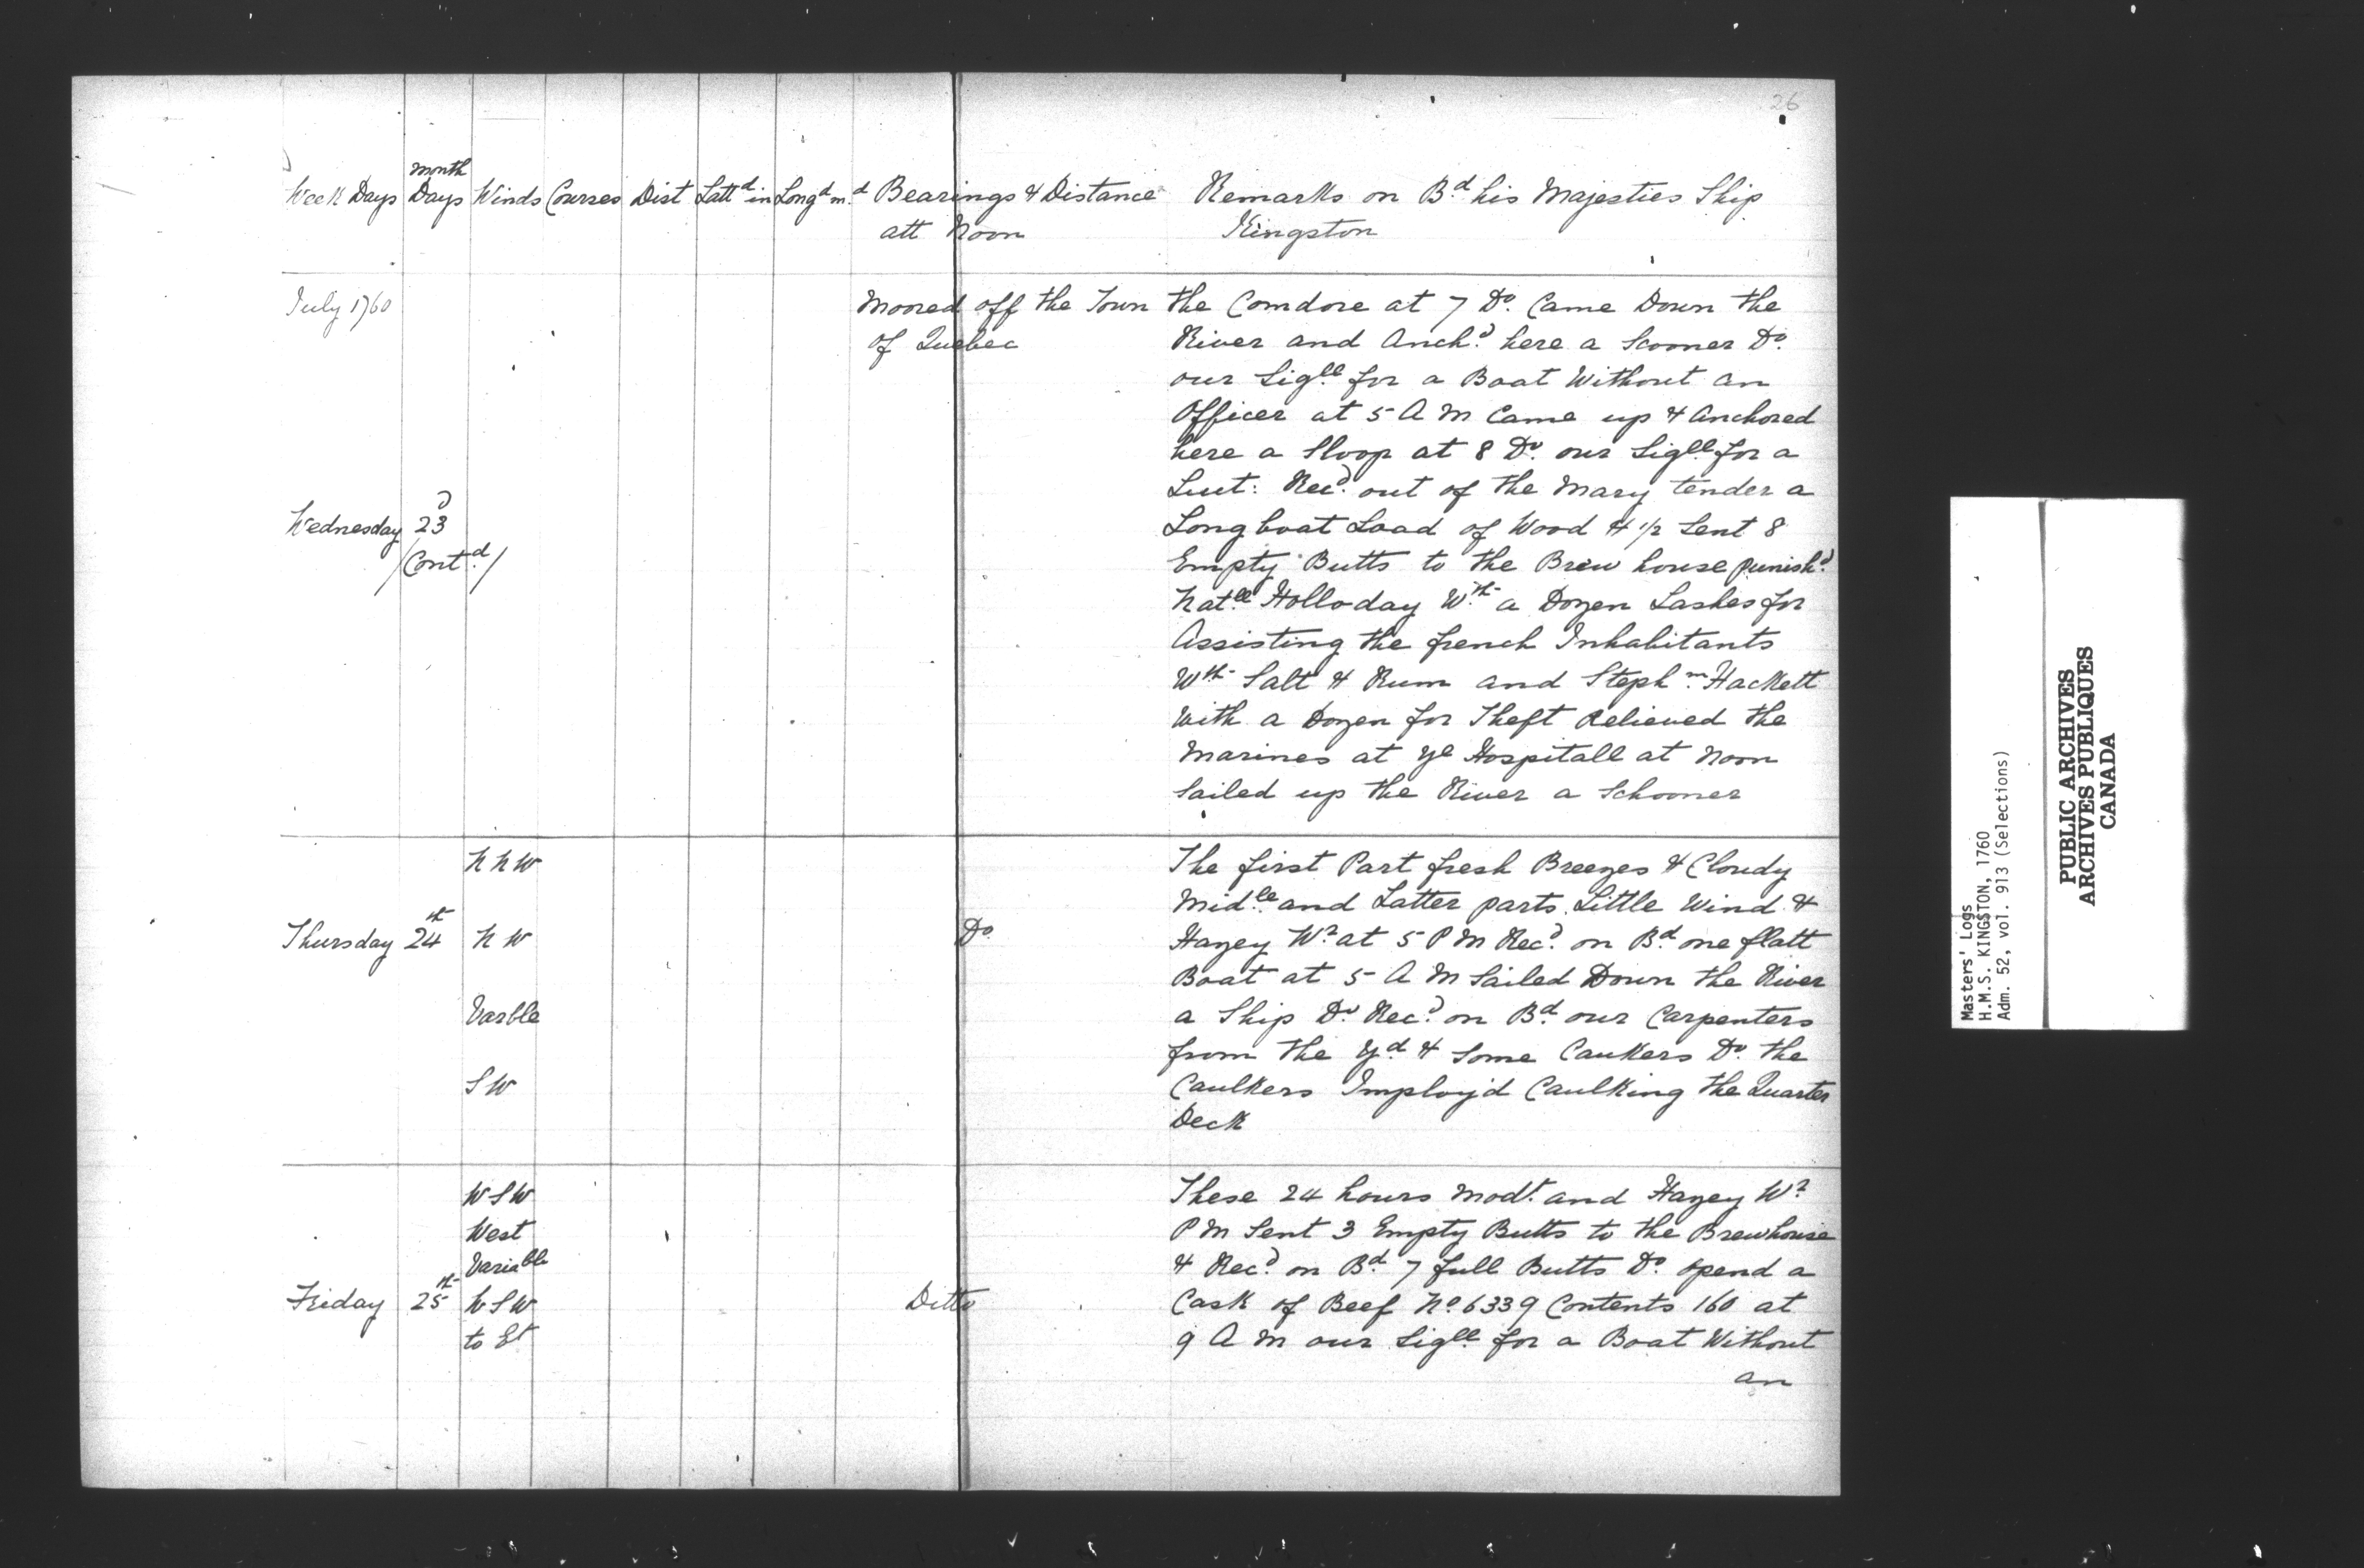 26
Week Days month Days Winds Courses Dist Lattd in Longd in Bearings & Distance att Noon Remarks on Bd his Majesties Ship Kingston
July 1760
Moored off the Town
of Quebec
Wednesday 23d
/Contd/
the Comdore at 7 Do. Came Down the
River and Anchd here a Scooner Do.
our Sigll for a Boat Without an
Officer at 5 A M Came up & Anchored
here a Sloop at 8 Do. our Sigll for a
Lut: Recd out of the Mary tender a
Longboat Load of Wood & 1/2 Sent 8
Empty Butts to the Brew house punishd
Natll Holloday Wth a Dozen Lashes for
Assisting the french Inhabitants
Wth Salt & Rum and Stephn Hackett
With a Dozen for Theft Relieved the
Marines at ye Hospitall at Noon
Sailed up the River a Schooner
Thursday 24th
N N W
N W
Varble
S W
Do
The first Part fresh Breezes & Cloudy
Midle and Latter parts Little Wind &
Hazey Wr at 5 P M Recd on Bd one flatt
Boat at 5 A M Sailed Down the River
a Ship Do Recd on Bd our Carpenters
from the Yd & Some Caukers Do. the
Caulkers Imploy'd Caulking the Quarter
Deck
Friday 25th
W S W
West
Variable
W S W
to Et
Ditto
These 24 hours Modt and Hazey Wr
P M Sent 3 Empty Butts to the Brewhouse
& Recd on Bd 7 full Butts Do. Opend a
Cask of Beef No 6339 Contents 160 at
9 A M our Sigll for a Boat Without
an
Masters' Logs
H.M.S. KINGSTON, 1760
Adm. 52, vol. 913 (Selections)
PUBLIC ARCHIVES
ARCHIVES PUBLIQUES
CANADA